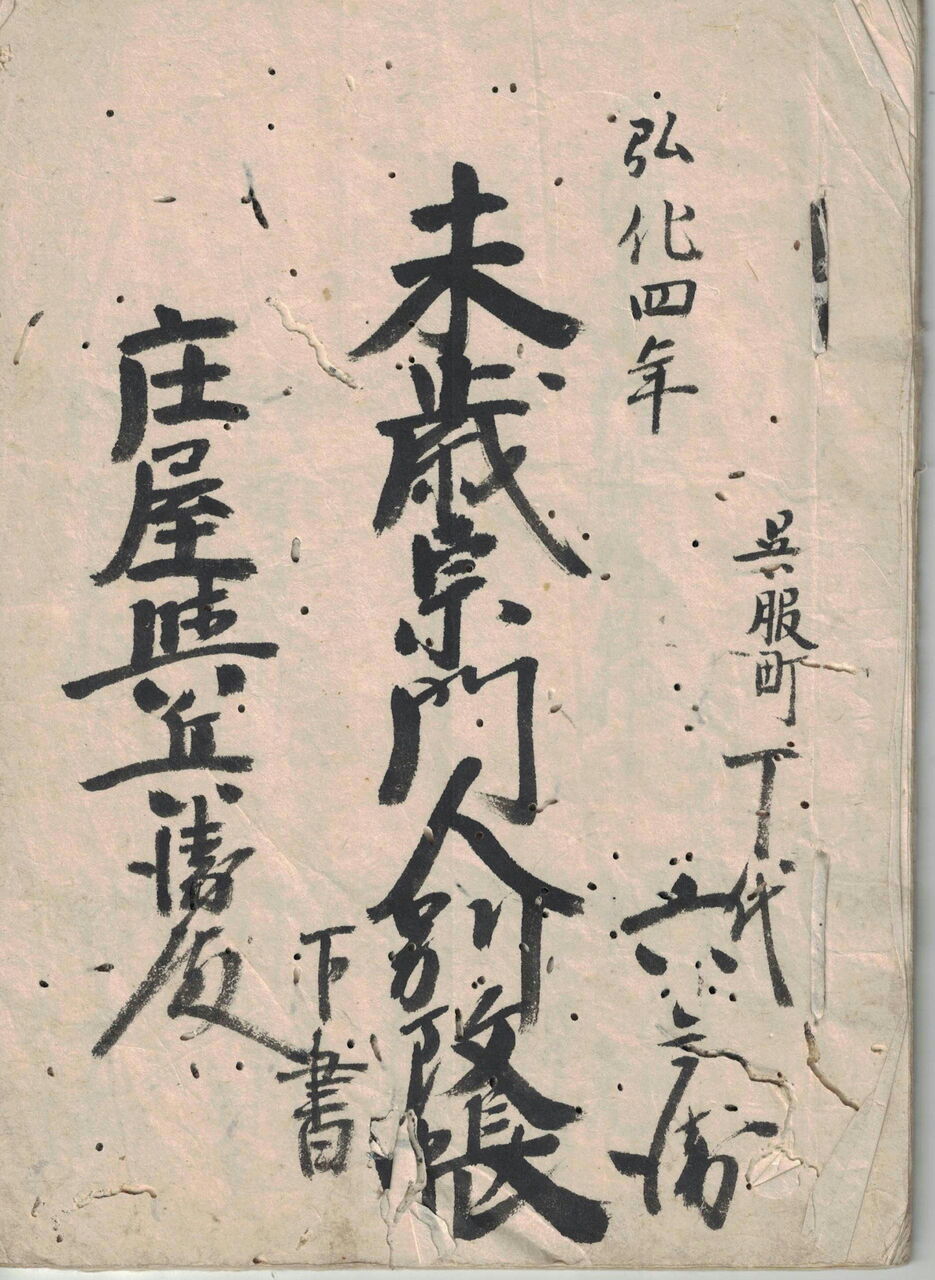 呉服町
丁代
弘化四年
未歳宗門人別改帳
下書
庄屋與兵衛